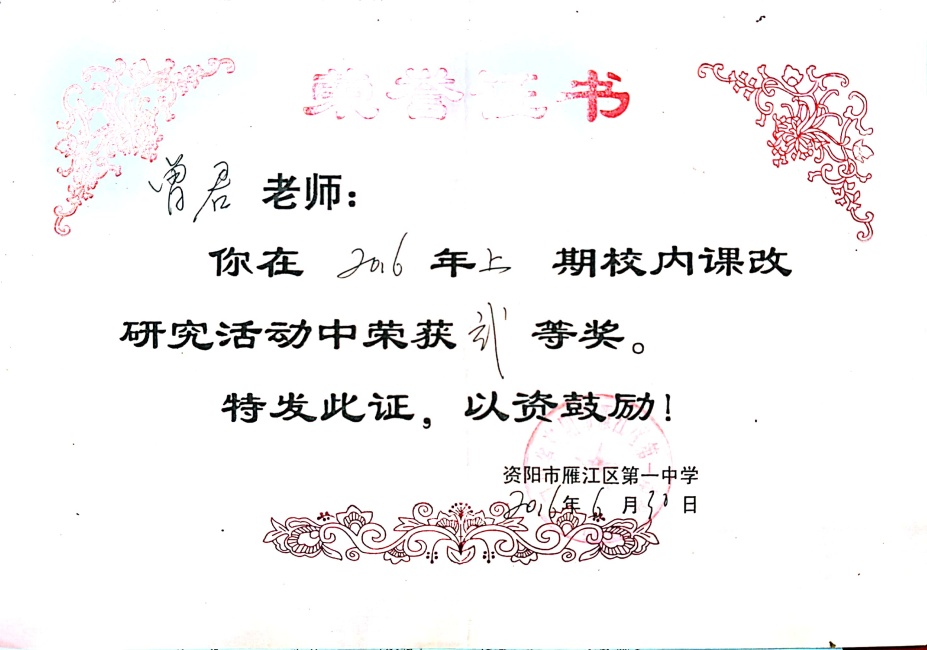 荣誉证书
曾君 老师：
你在 2016 年上 期校内课改
研究活动中荣获 弍 等奖。
特发此证，以资鼓励！
资阳市雁江区第一中学
2016年 6 月 30 日